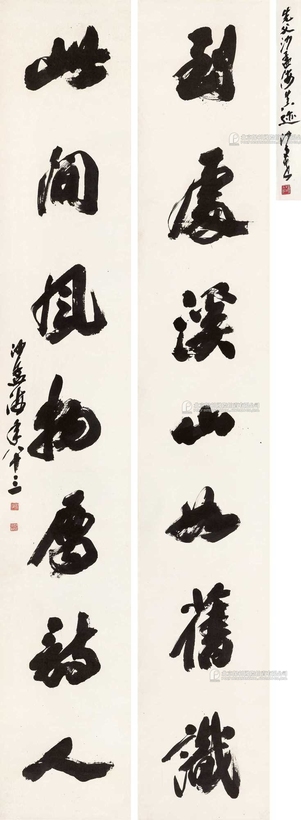 先父沙孟海真迹 沙
到處溪山如舊識
此間風物屬詩人
沙孟海年八十三